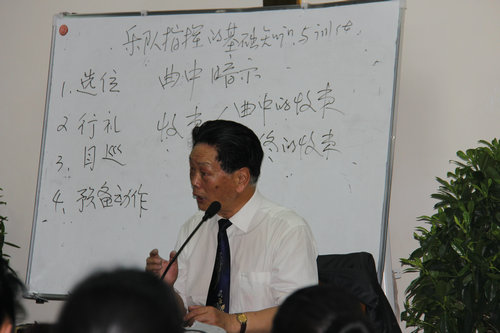 乐队指挥的基础知识与训练
1.选位
2 行礼
3.目巡
4.预备动作
曲中暗示
收责/曲中的收责
的收责